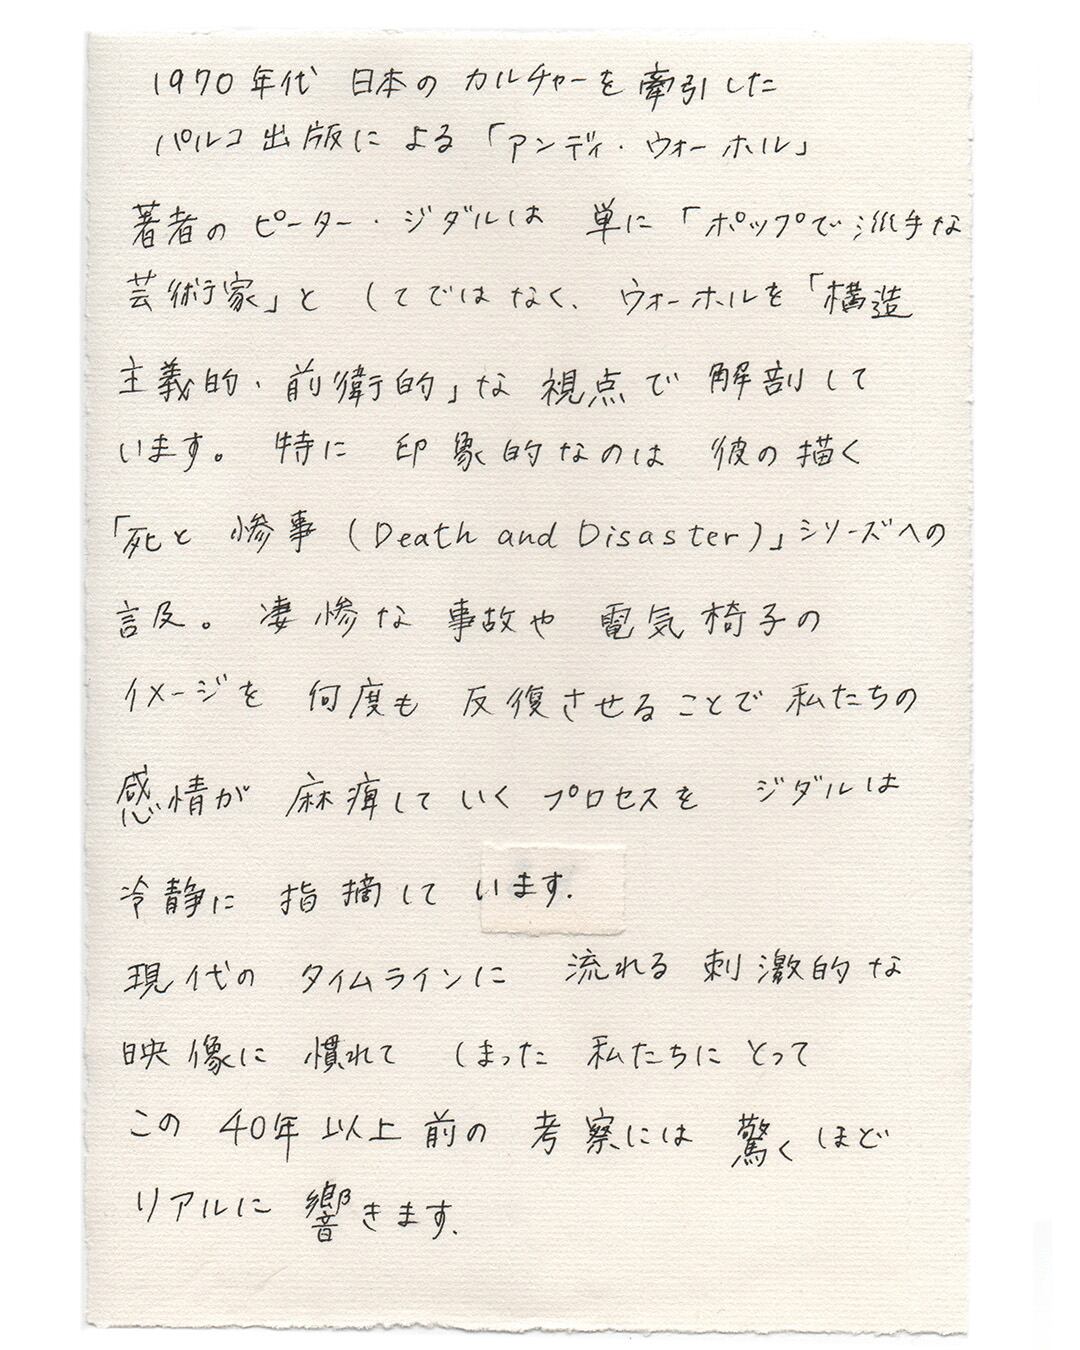 1970年代 日本の カルチャーを 牽引した
パルコ出版による「アンディ・ウォーホル」
著者の ピーター・ジダルは 単に「ポップで派手な
芸術家」と してではなく、ウォーホルを「構造
主義的・前衛的」な 視点で 解剖して
います。特に 印象的なのは 彼の描く
「死と 惨事 (Death and Disaster)」シリーズへの
言及。凄惨な 事故や 電気椅子の
イメージを 何度も 反復させることで 私たちの
感情が 麻痺して いく プロセスを ジダルは
冷静に 指摘して います.
現代の タイムラインに 流れる 刺激的な
映像に 慣れて しまった 私たちに とって
この 40年以上前の 考察には 驚くほど
リアルに 響きます.